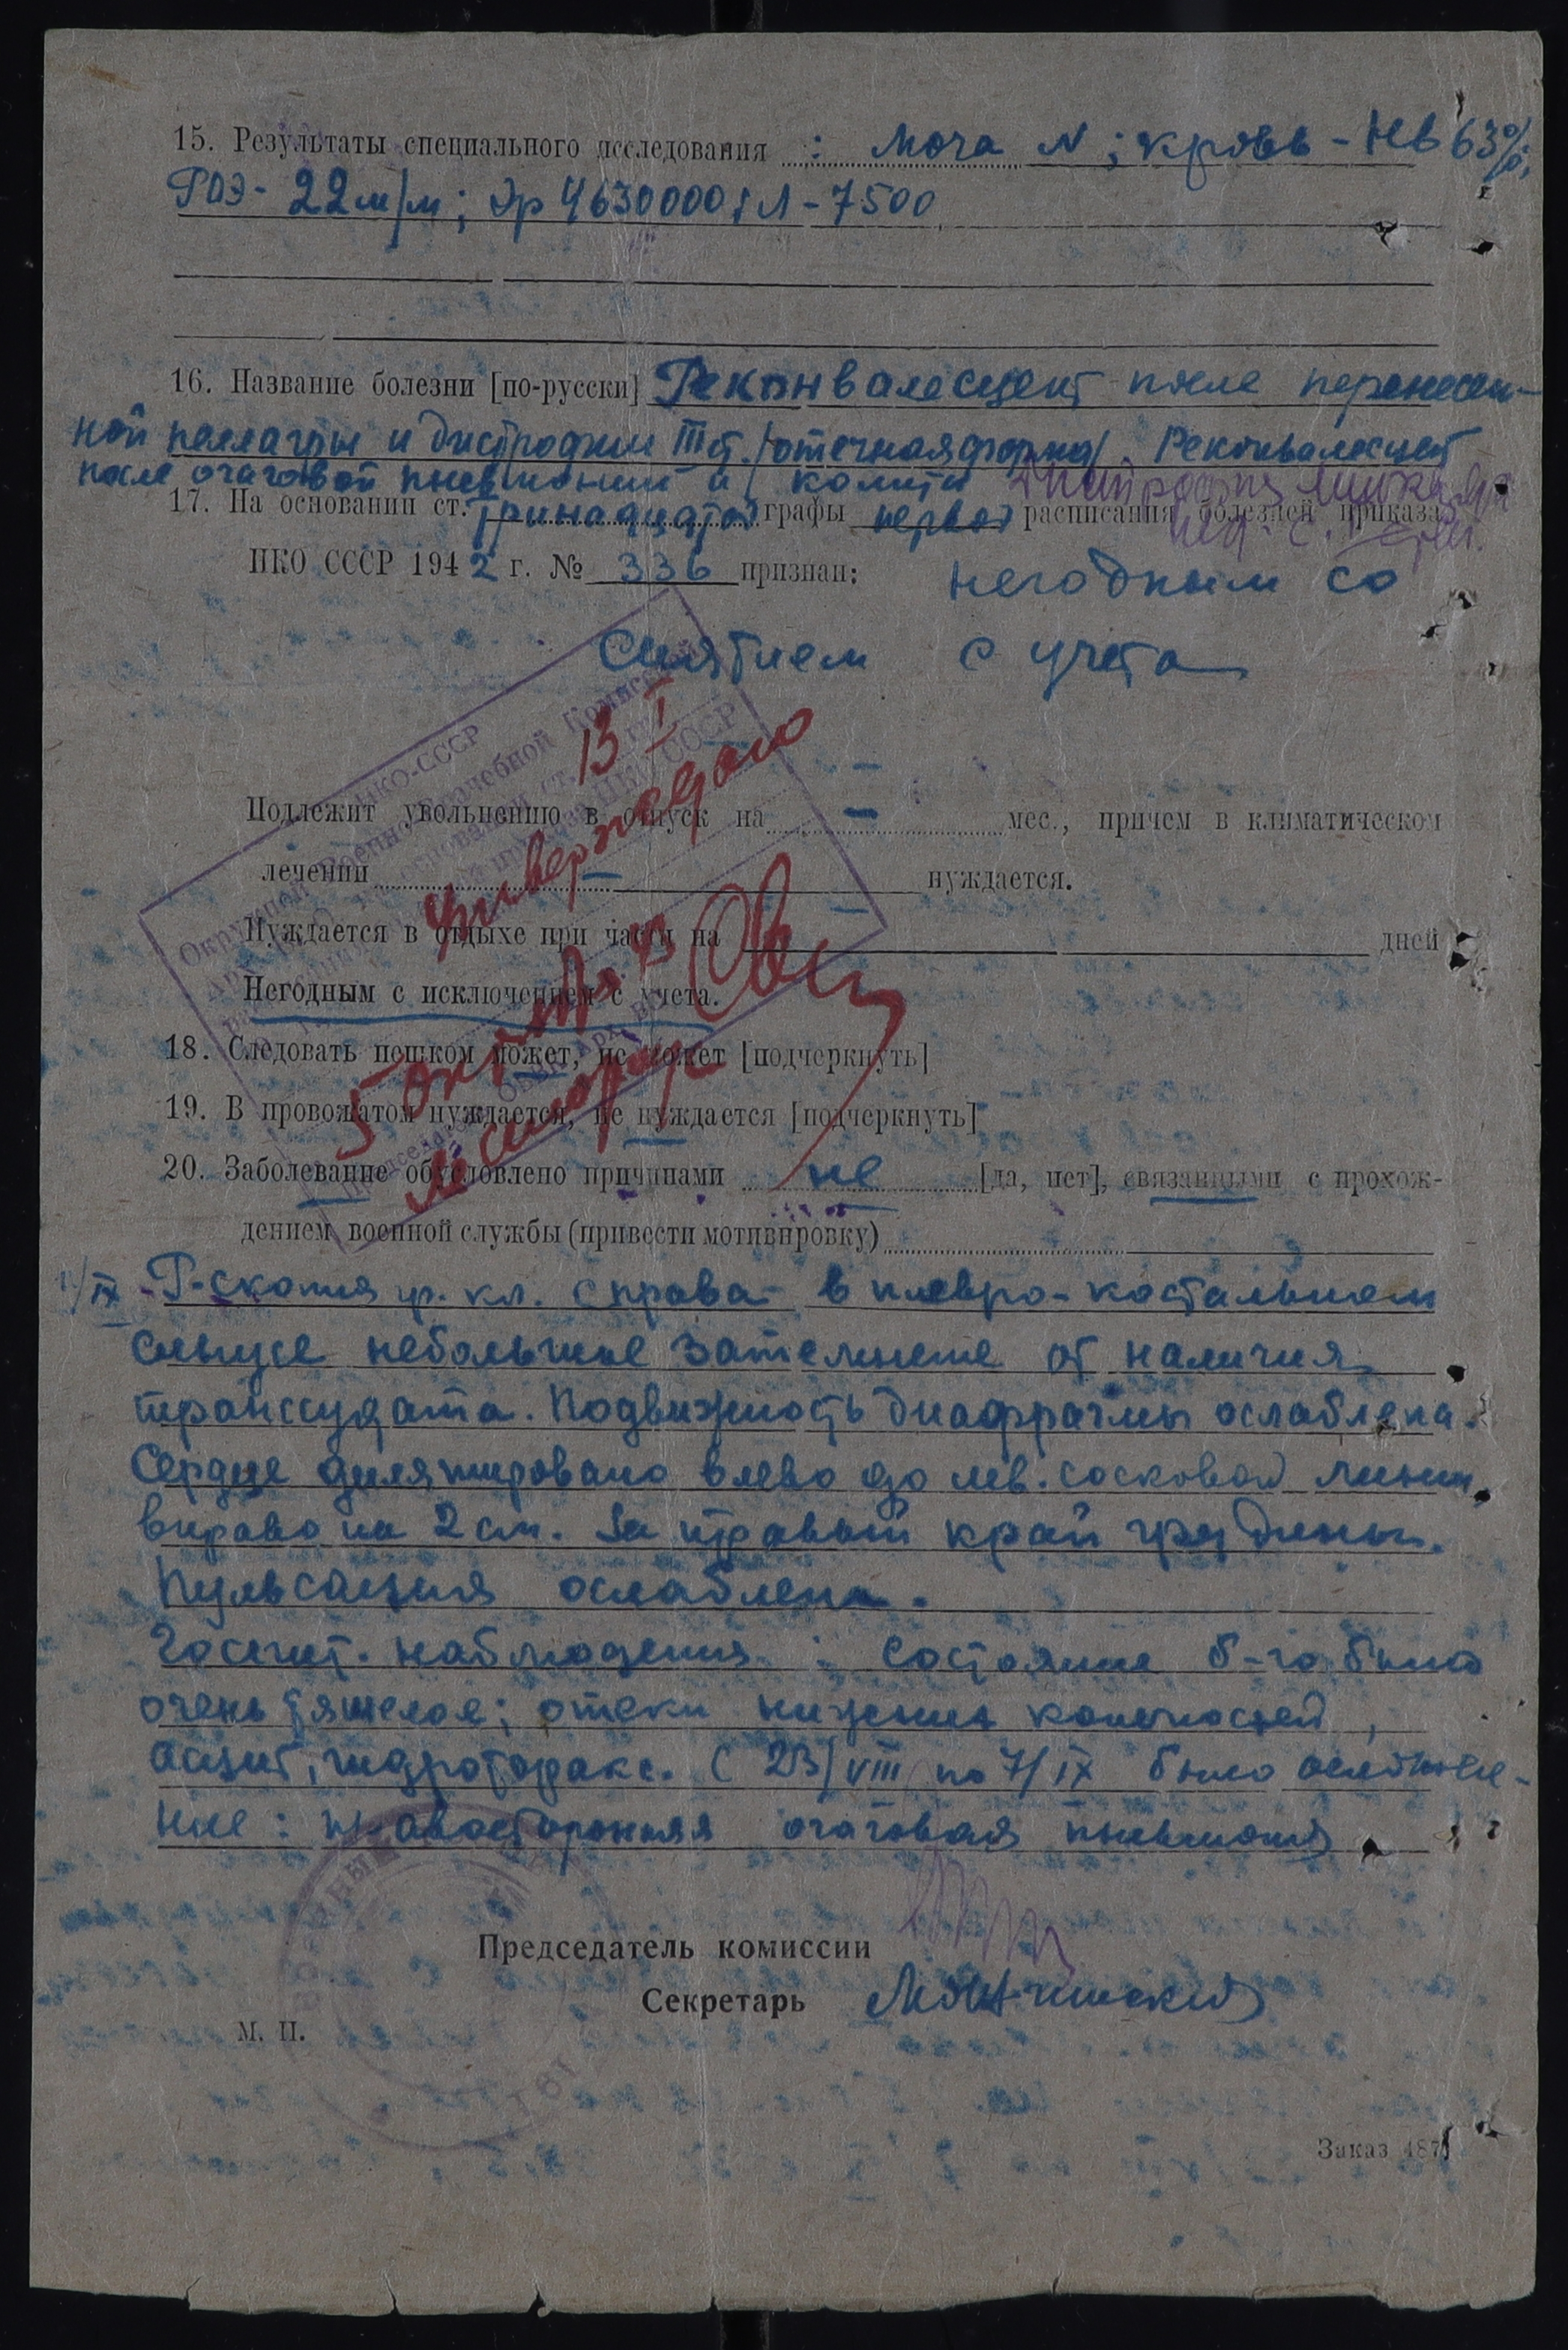 15. Результаты специального исследования : Моча N ; кровь - Нв 63%;
РОЭ - 22 м/м; Эр 4630000; Л - 7500
16. Название болезни [по-русски] Реконвалесцент после перенесен-
ной пеллагры и дистрофии III ст. /отечная форма/. Реконвалесцент
после очаговой пневмонии и колита Дистрофия
17. На основании ст. тринадцатой графы первой расписания болезней приказа
НКО СССР 1942 г. № 336 признан: негодным со
снятием с учета
НКО-СССР
Окружной Военно-Врачебной Комиссией
13 I
Утверждаю
Подлежит увольнению в отпуск на — мес., причем в климатическом
лечении — нуждается.
Нуждается в отдыхе при части на дней
Негодным с исключением с учета.
5 октября 43
18. Следовать пешком может, не может [подчеркнуть]
19. В провожатом нуждается, не нуждается [подчеркнуть]
20. Заболевание обусловлено причинами не [да, нет], связанными с прохож-
дением военной службы (привести мотивировку)
IX - Р-скопия гр. кл. справа в плевро-костальном
синусе небольшое затемнение от наличия
транссудата. Подвижность диафрагмы ослаблена.
Сердце дилятировано влево до лев. сосковой линии,
вправо на 2 см. за правый край грудины.
Пульсация ослаблена.
Госпит. наблюдения : Состояние б-го было
очень тяжелое; отеки нижних конечностей,
асцит, гидроторакс. С 23/VIII по 7/IX было осложне-
ние: правосторонняя очаговая пневмония
Председатель комиссии
Секретарь
М. П.
Заказ 487